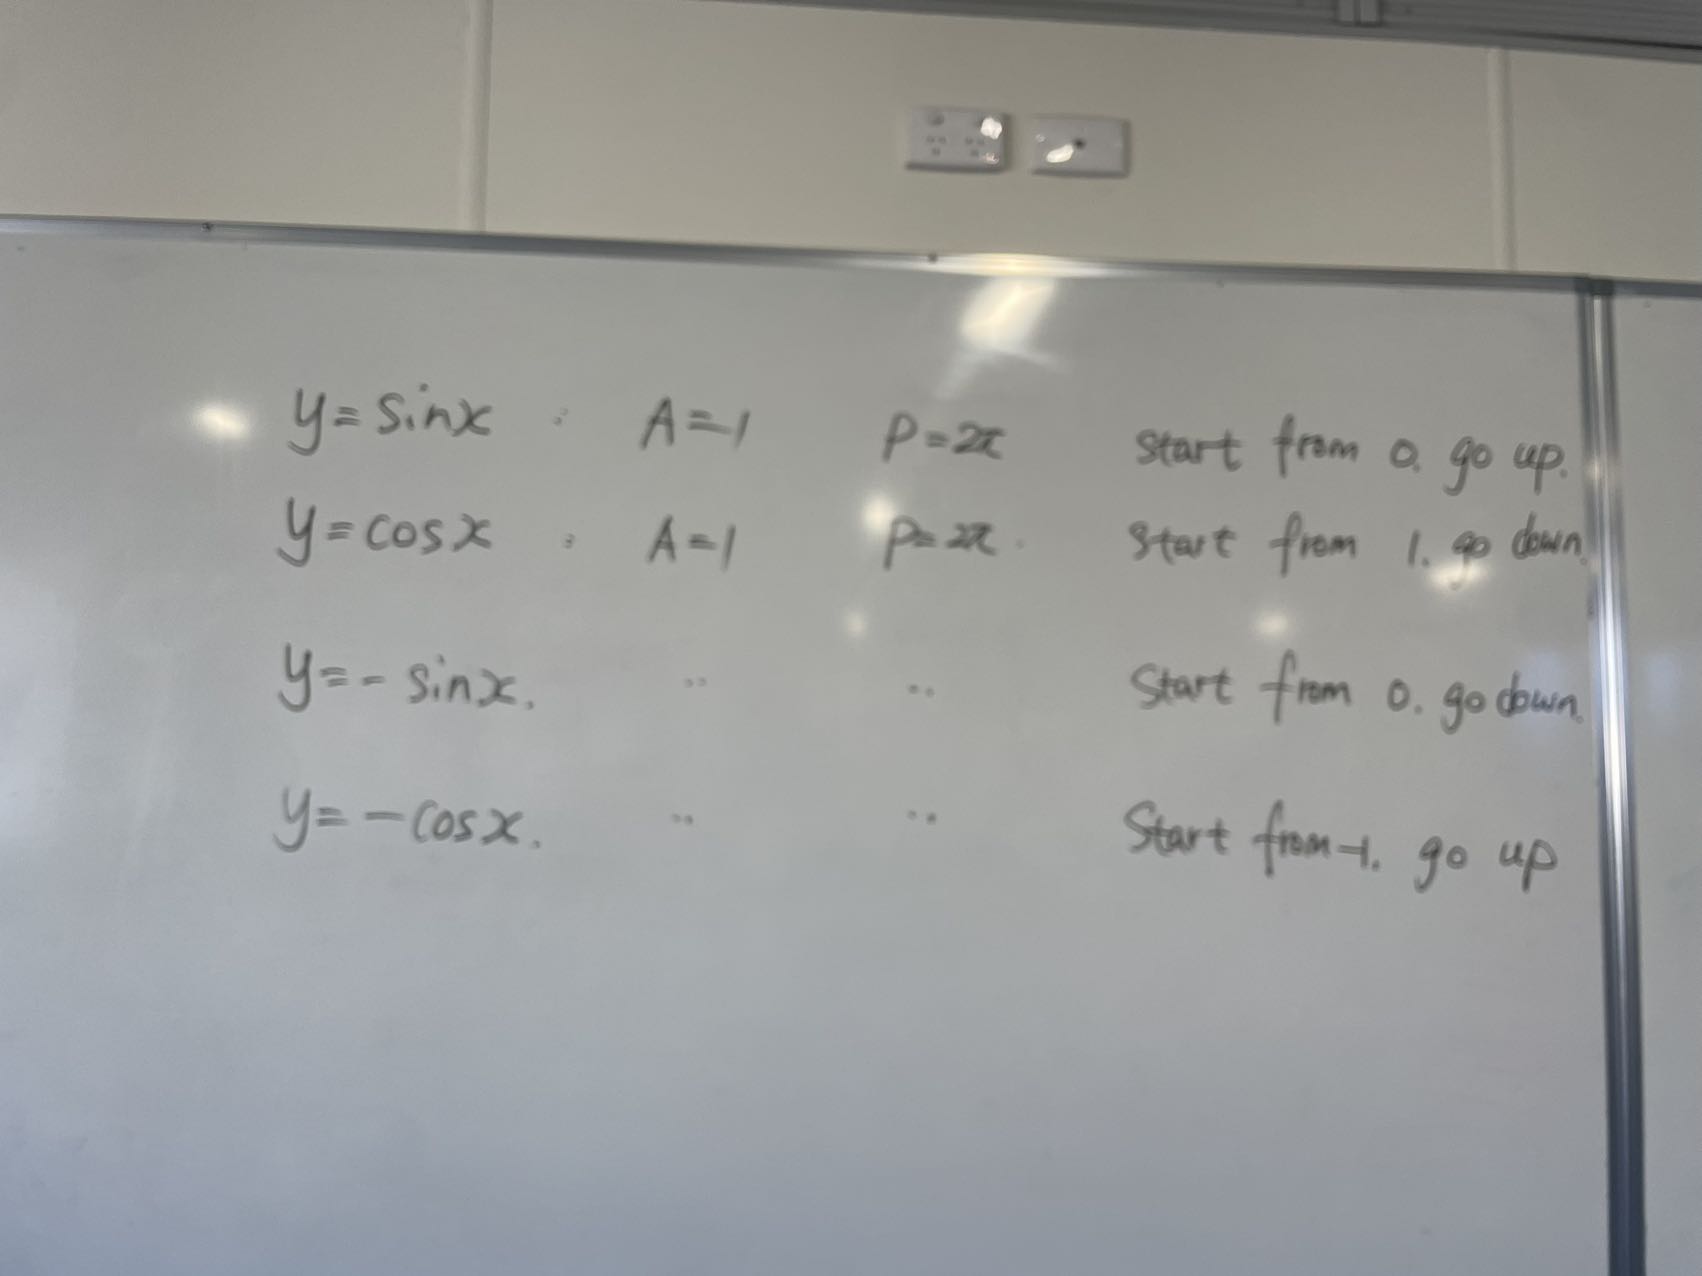 y=sinx : A=1 P=2π start from 0. go up.
y=cosx : A=1 P=2π. Start from 1. go down.
y=- sinx. " " Start from 0. go down.
y=-cosx. " " Start from -1. go up